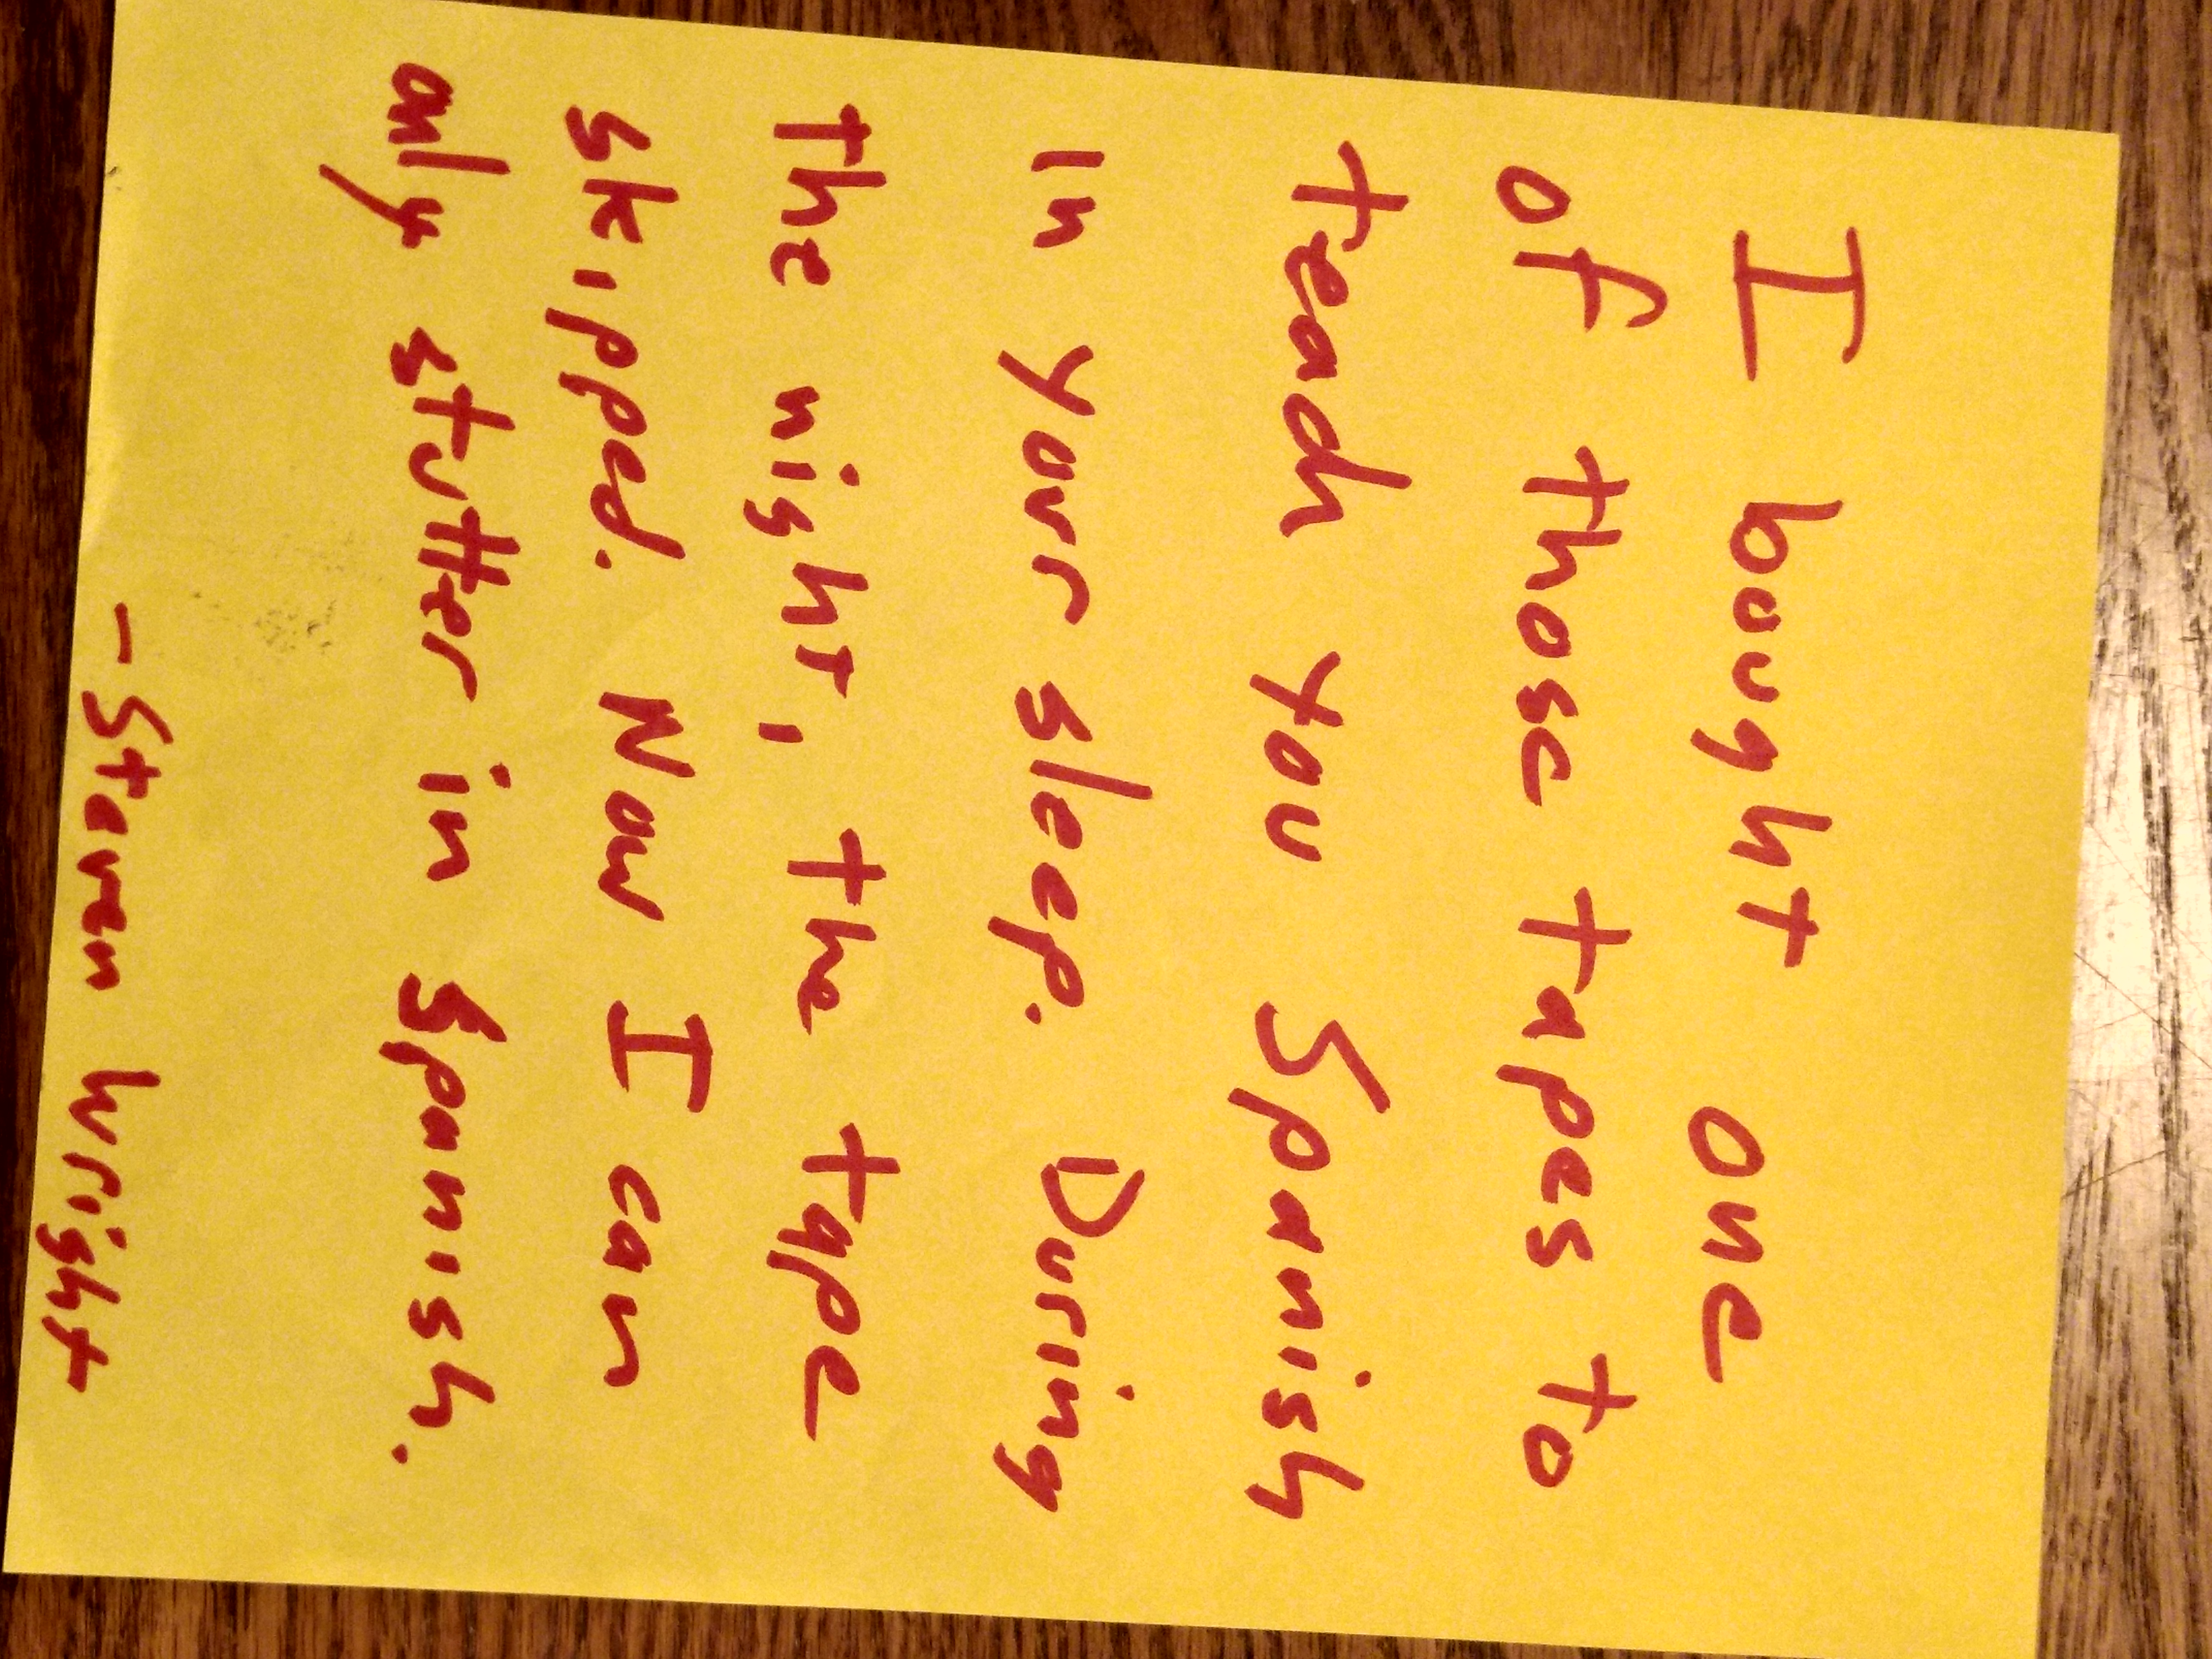 I bought one
of those tapes to
teach you Spanish
in your sleep. During
the night, the tape
skipped. Now I can
only stutter in Spanish.
- Steven Wright